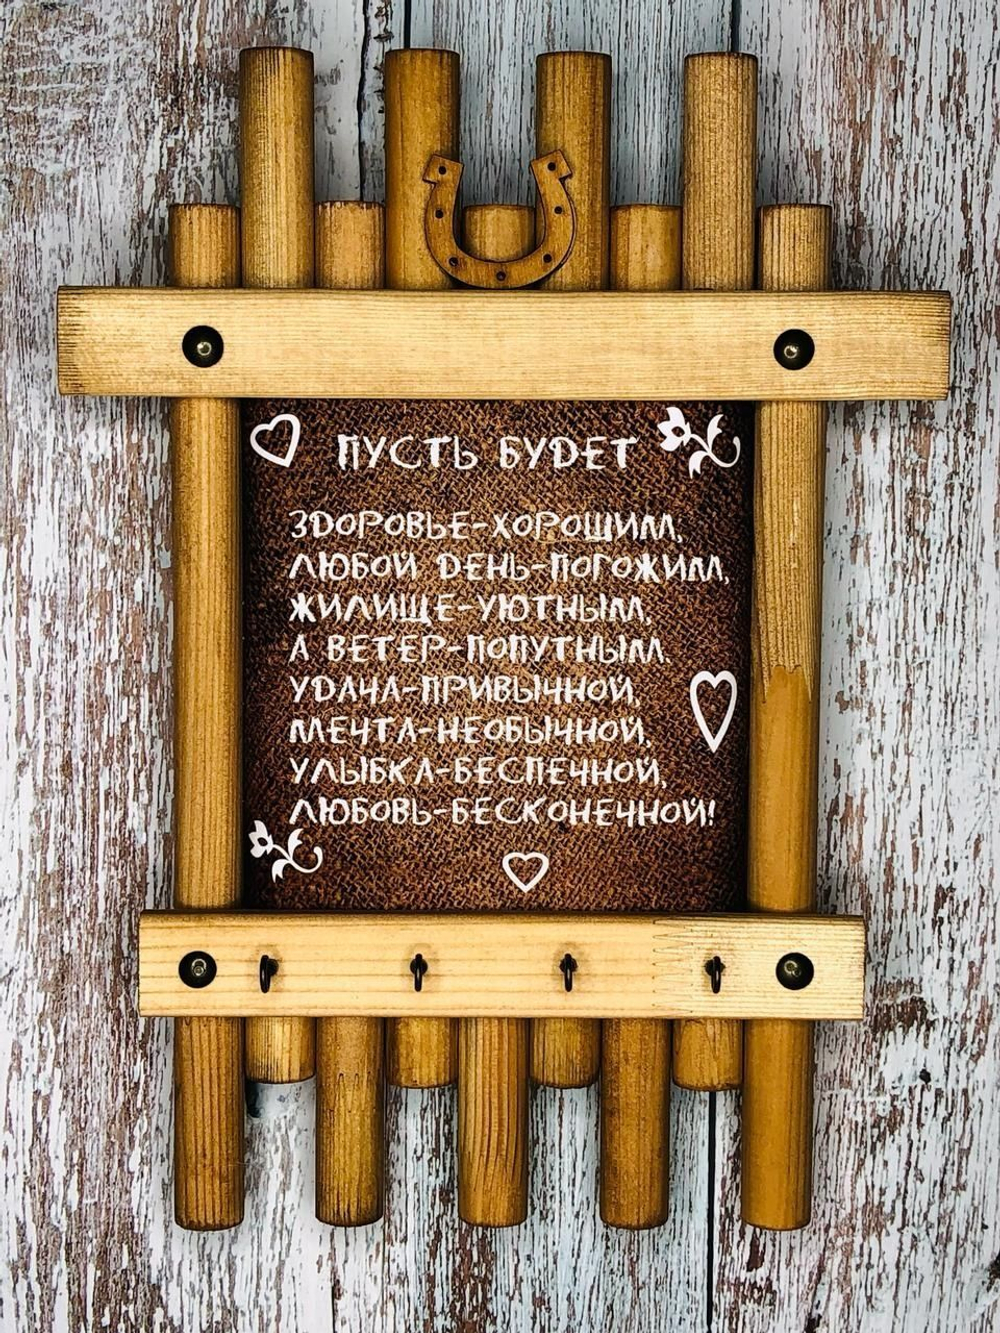 ПУСТЬ БУДЕТ
ЗДОРОВЬЕ-ХОРОШИМ,
ЛЮБОЙ ДЕНЬ-ПОГОЖИМ,
ЖИЛИЩЕ-УЮТНЫМ,
А ВЕТЕР-ПОПУТНЫМ.
УДАЧА-ПРИВЫЧНОЙ,
МЕЧТА-НЕОБЫЧНОЙ,
УЛЫБКА-БЕСПЕЧНОЙ,
ЛЮБОВЬ-БЕСКОНЕЧНОЙ!